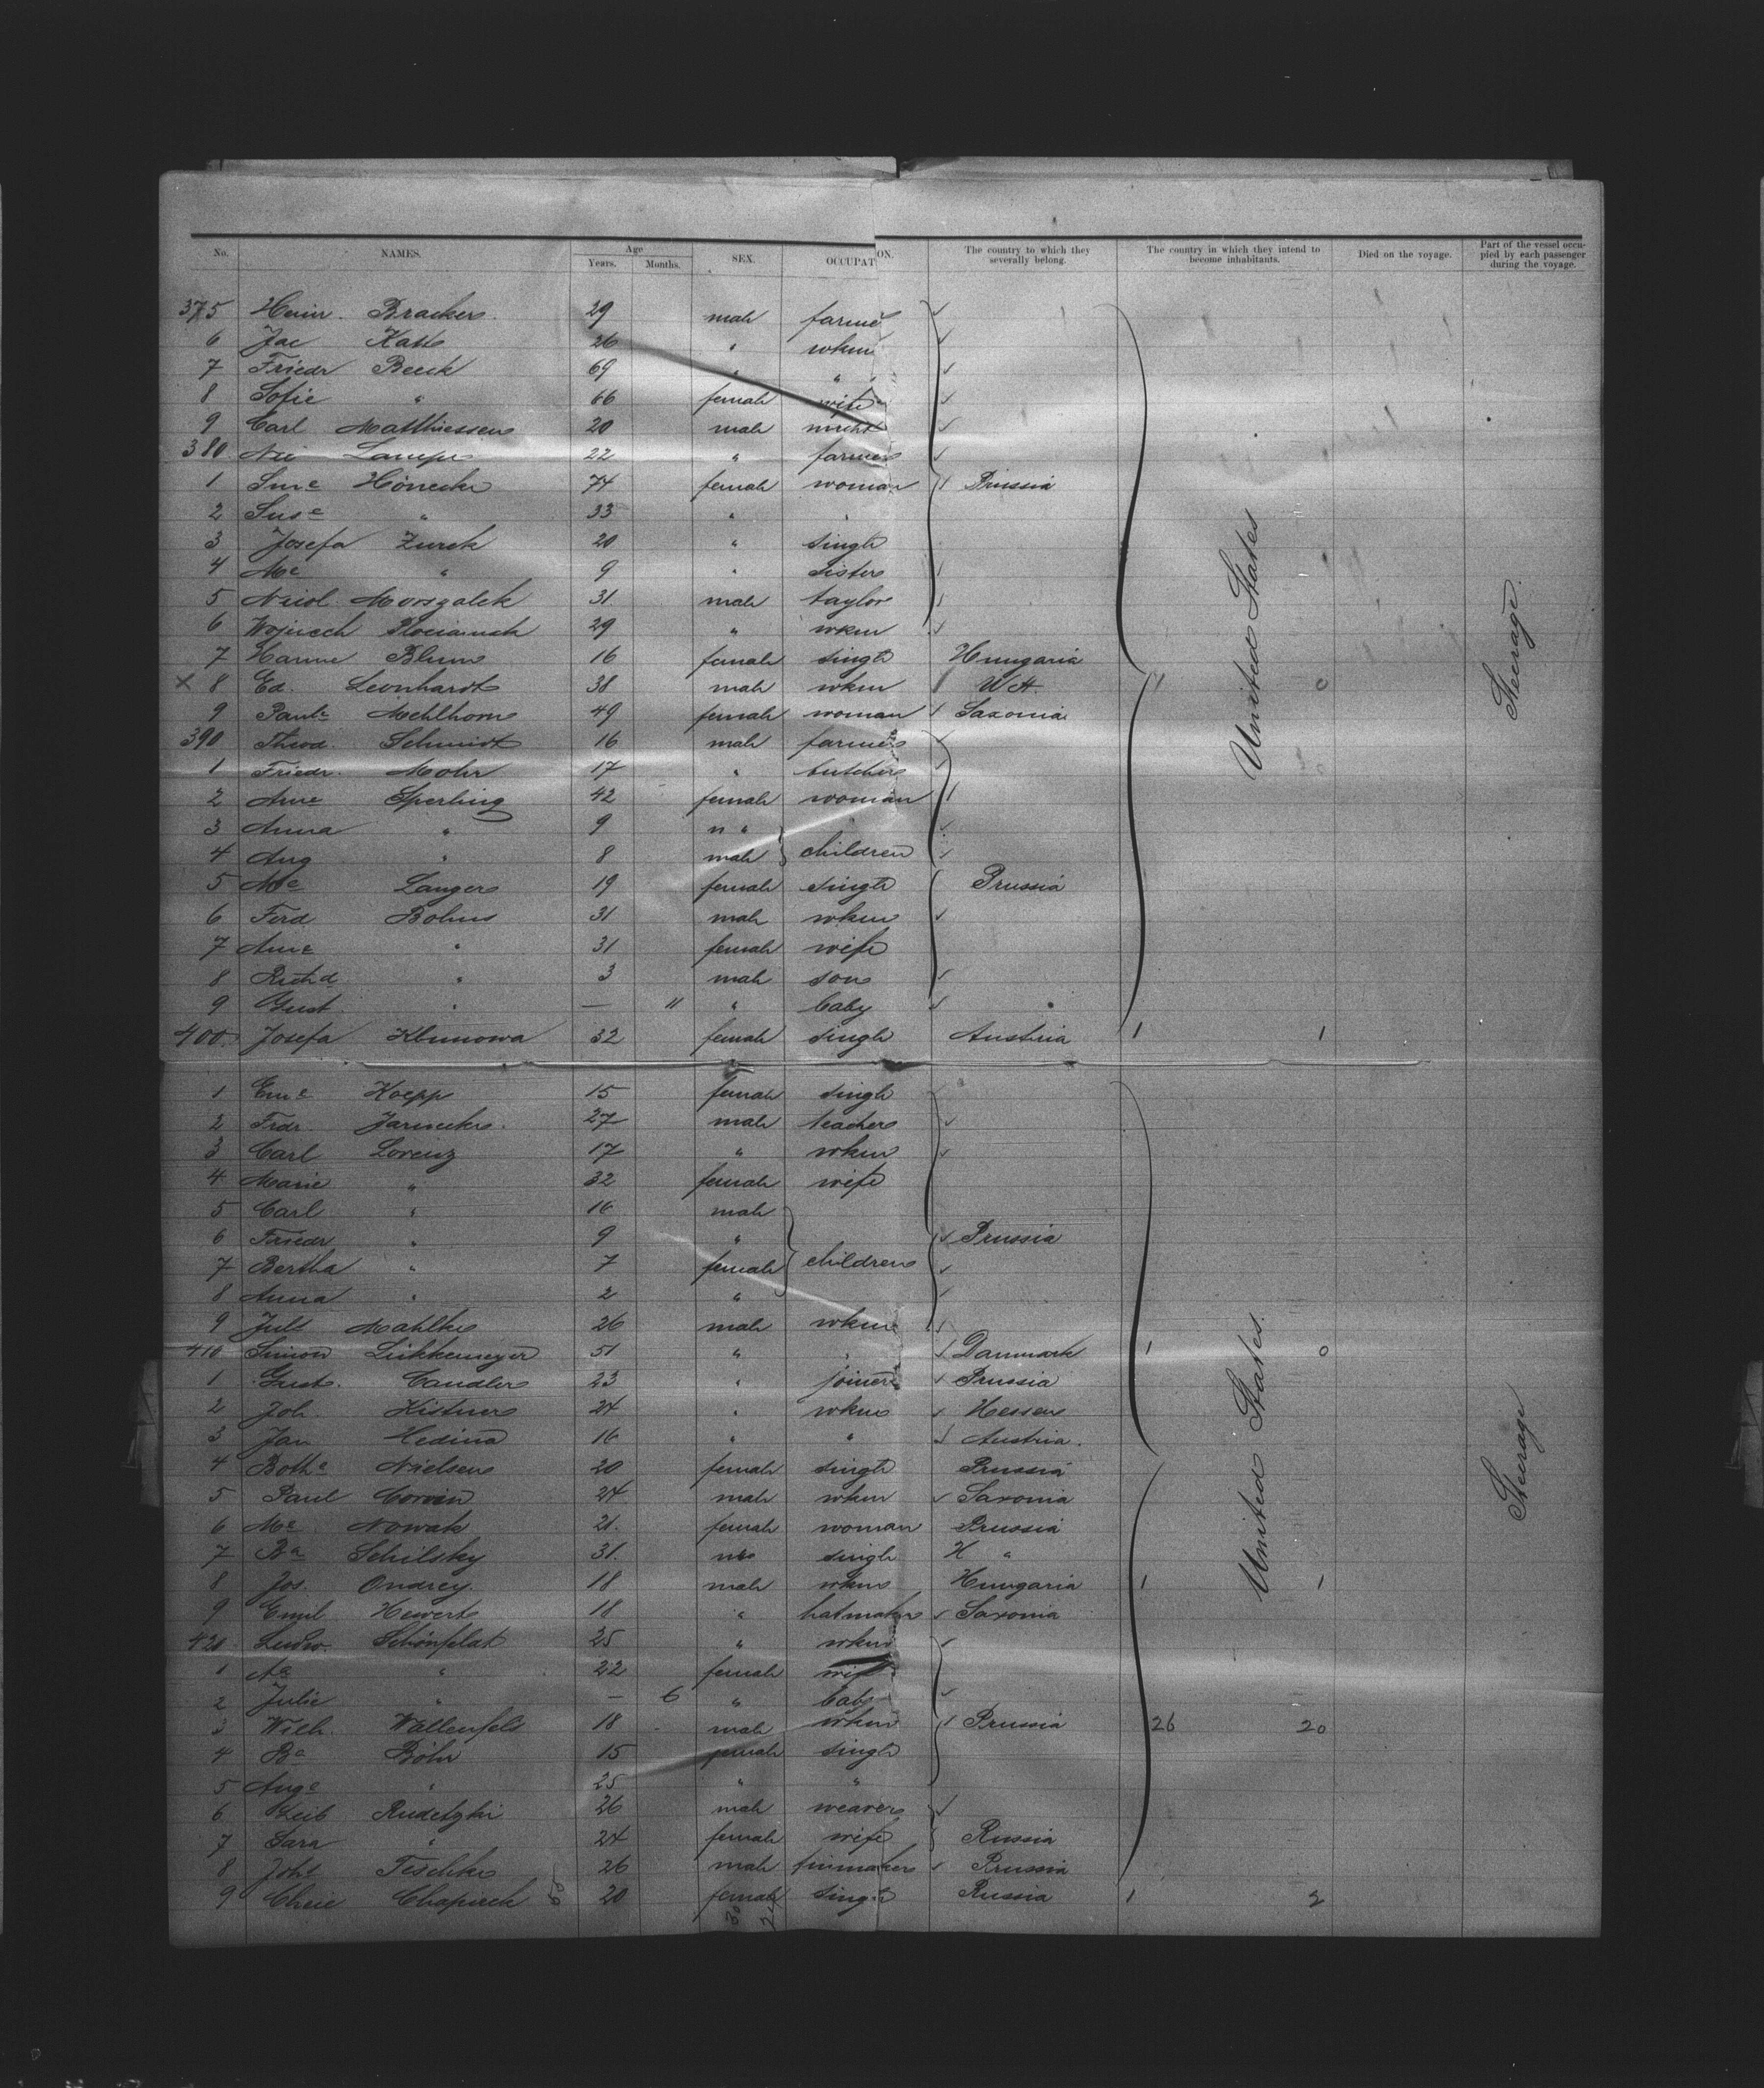 No. NAMES. Age Years. Months. SEX. OCCUPATION. The country to which they severally belong. The country in which they intend to become inhabitants. Died on the voyage. Part of the vessel occupied by each passenger during the voyage.
375 Heinr. Brackers 29 male farmer
6 Jac 26 " wkm
7 Friedr Beeck 69 " "
8 Sofie " 66 female wife
9 Carl Matthiessen 20 male
380 Lampe 22 " farmer
1 Hönecke 74 female woman Prussia
2 Suse " 33 " "
3 Josefa Zurek 20 " single
4 Me " 9 " sister
5 Nicol. Morszalek 31 male taylor
6 Wojciech 29 " wkm
7 Hanne Blum 16 female single Hungaria
x 8 Ed. Leonhardt 38 male wkm 1 0
9 Paule Mehlhorn 49 female woman Saxonia
390 Theod. Schmidt 16 male farmer
1 Friedr. Mohr 17 " butcher
2 Ane Sperling 42 female woman
3 Anna " 9 "
4 Aug " 8 male children
5 Me Langer 19 female single Prussia
6 Ferd Bohm 31 male wkm
7 Ane " 31 female wife
8 Richd " 3 male son
9 Gust. " — 11 " baby
400. Josefa Klimowa 32 female single Austria 1 1
United States
Steerage.
1 Eme Koepp 15 female single
2 Frdr. 27 male teacher
3 Carl Lorenz 17 " wkm
4 Marie " 32 female wife
5 Carl " 16 male
6 Friedr " 9 " Prussia
7 Bertha " 7 female children
8 Anna " 2 "
9 Juls Mahlke 26 male wkm
410 Simon Lükkemeyer 51 " " Danmark 1 0
1 Gust. Candler 23 " joiner Prussia
2 Joh. Kistner 24 " wkm Hessen
3 Jan Hedina 16 " " Austria.
4 Bothe Nielsen 20 female single Prussia
5 Paul Corvin 24 male wkm Saxonia
6 Me Nowak 21. female woman Prussia
7 Ba Schilsky 31. single "
8 Jos. Ondrey 18 male wkm Hungaria 1 1
9 Emil Hewert 18 " hatmaker Saxonia
420 Ludw. Schönfeldt 25 " wkm
1 Aa " 22 female wife
2 Julie " — 6 " baby
3 Wilh. Wallenfels 18 male wkm Prussia 26 20
4 Ba Böhr 15 female single
5 Auge " 25 " "
6 Leib Rudetzki 26 male weaver
7 Sara " 24 female wife Russia
8 Johs Teschke 26 male Prussia
9 Cheie Chapirek 20 female single Russia 1 2
United States.
Steerage